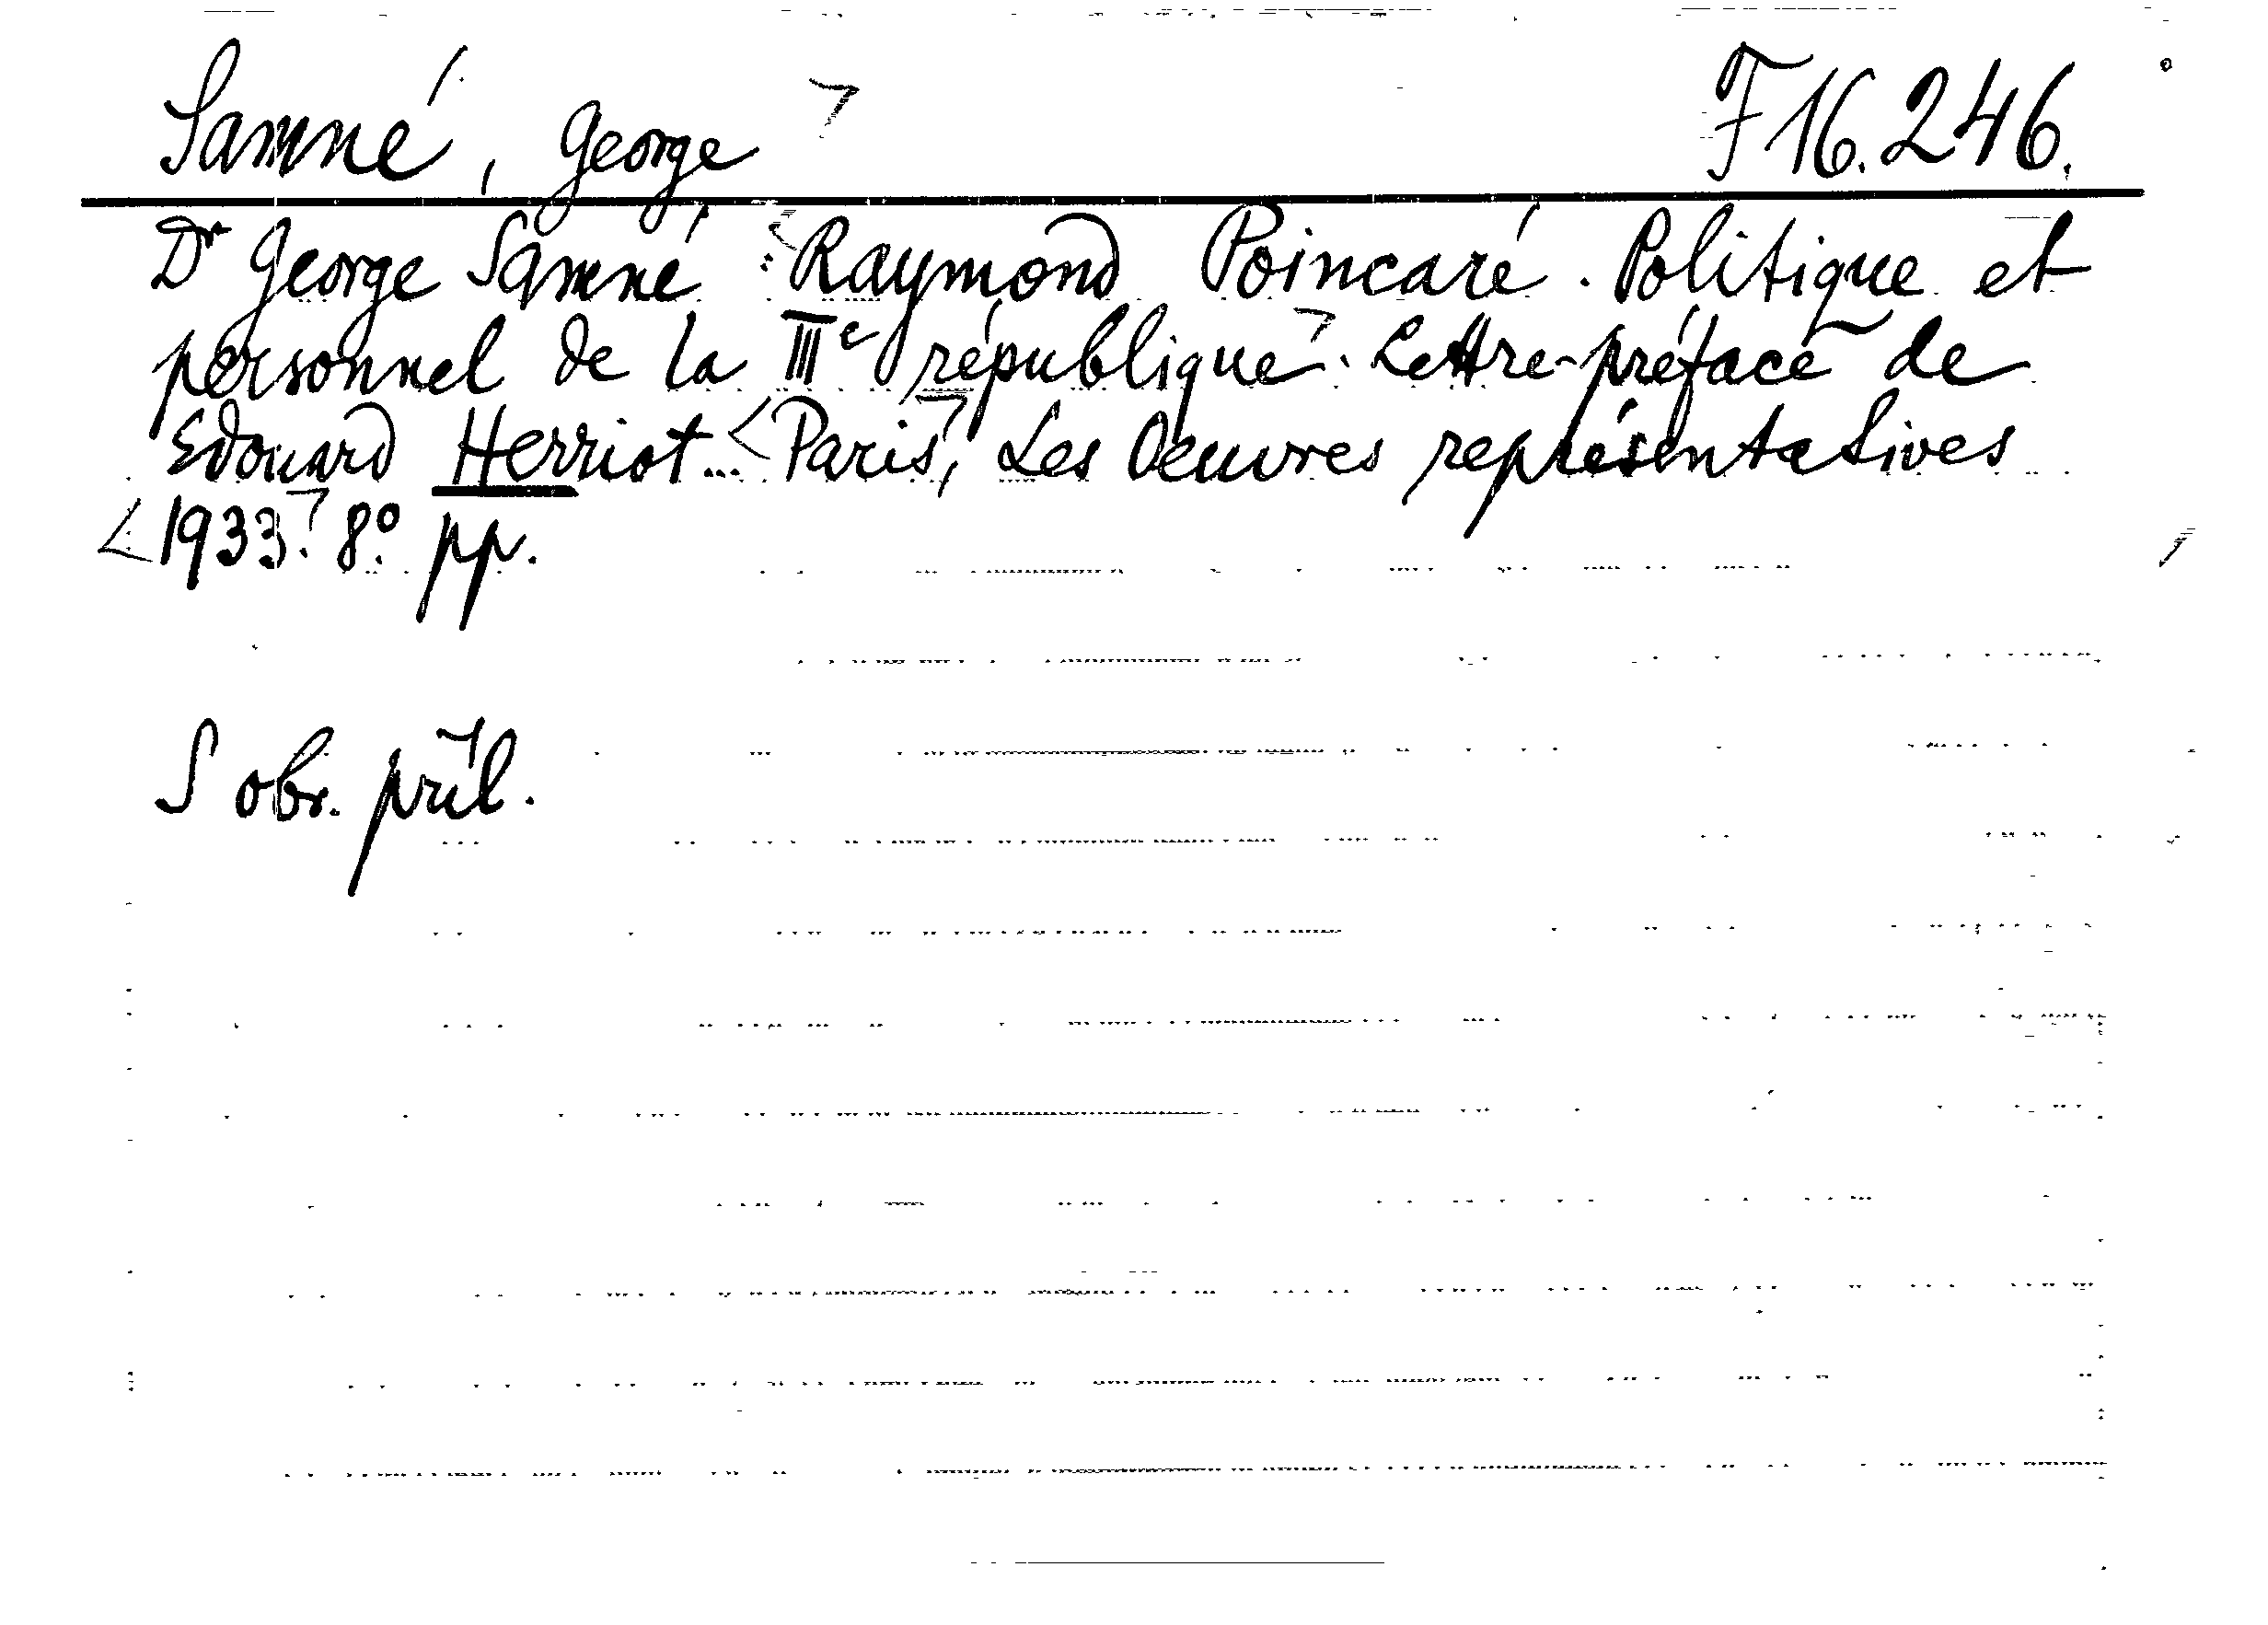 Samné, George F 16.246.
Dr George Samné: Raymond Poincaré. Politique et
personnel de la IIIe république. Lettre-préface de
Edouard Herriot... Paris, Les Oeuvres représentatives
1933. 8°. pp.
S obr. příl.